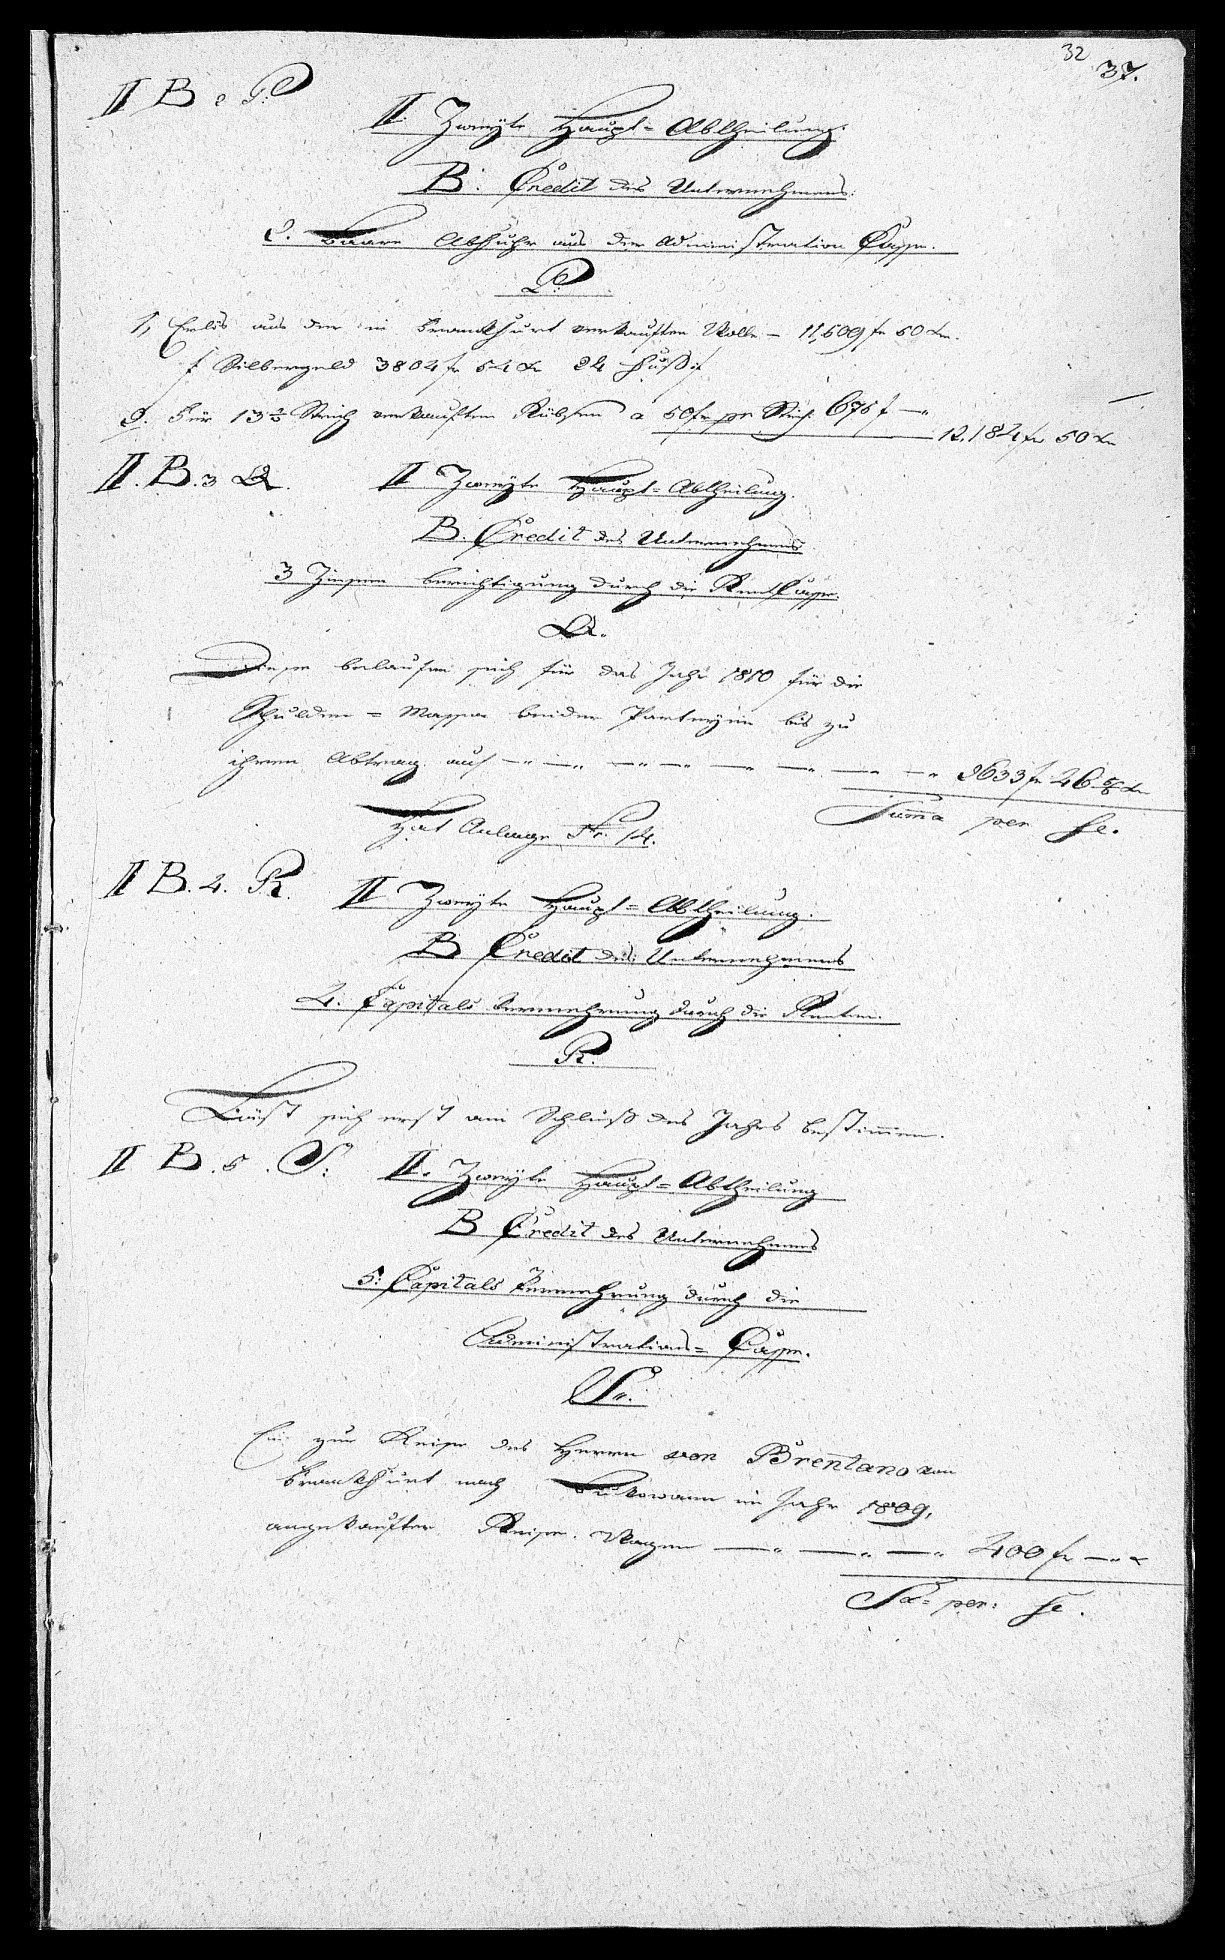 32
37.
II B 2 P:
II. Zweyte Haupt=Abtheilung.
B: Credit des Unternehmens.
2. Baare Abfuhr aus der Administration Casse.
P:
1, Erlös aus der in Franckfurt verkauften Wolle – 11,509 fr 50 xr.
/: Silbergeld 3804 fr 54 xr 24 Fuß :/
2. Für 13 ½ Strich verkauften Rübsen a 50 fr pr Strich. 675 f —"
12.184 fr 50 xr
II. B. 3 Q.
II Zweyte Haupt=Abtheilung.
B. Credit des Unternehmens
3 Zinsen berichtigung durch die Rent Casse.
Q.
Diese belaufen sich für das Jahr 1810 für die
Schulden = Massa beider Parteyen bis zu
ihrem Abtrag auf —"—"—"—"—"—"—"—" 9633 fr 26 5/6 xr
Summa per se.
Hat Anlage Nr. 14.
II B. 4. R.
II Zweyte Haupt=Abtheilung.
B Credit des Unternehmens
4. Capitals Vermehrung durch die Renten.
R.
Läst sich erst am Schluß des Jahrs bestimmen.
II B. 5. S:
II. Zweyte Haupt=Abtheilung
B Credit des Unternehmens
5: Capitals Vermehrung durch die
Administrations= Casse.
S.
Ein zur Reise des Herrn von Brentano von
Franckfurt nach Bukowann im Jahr 1809,
angekaufter Reise. Wagen —"—"—" 400 fr —"x
Sa= per: se.